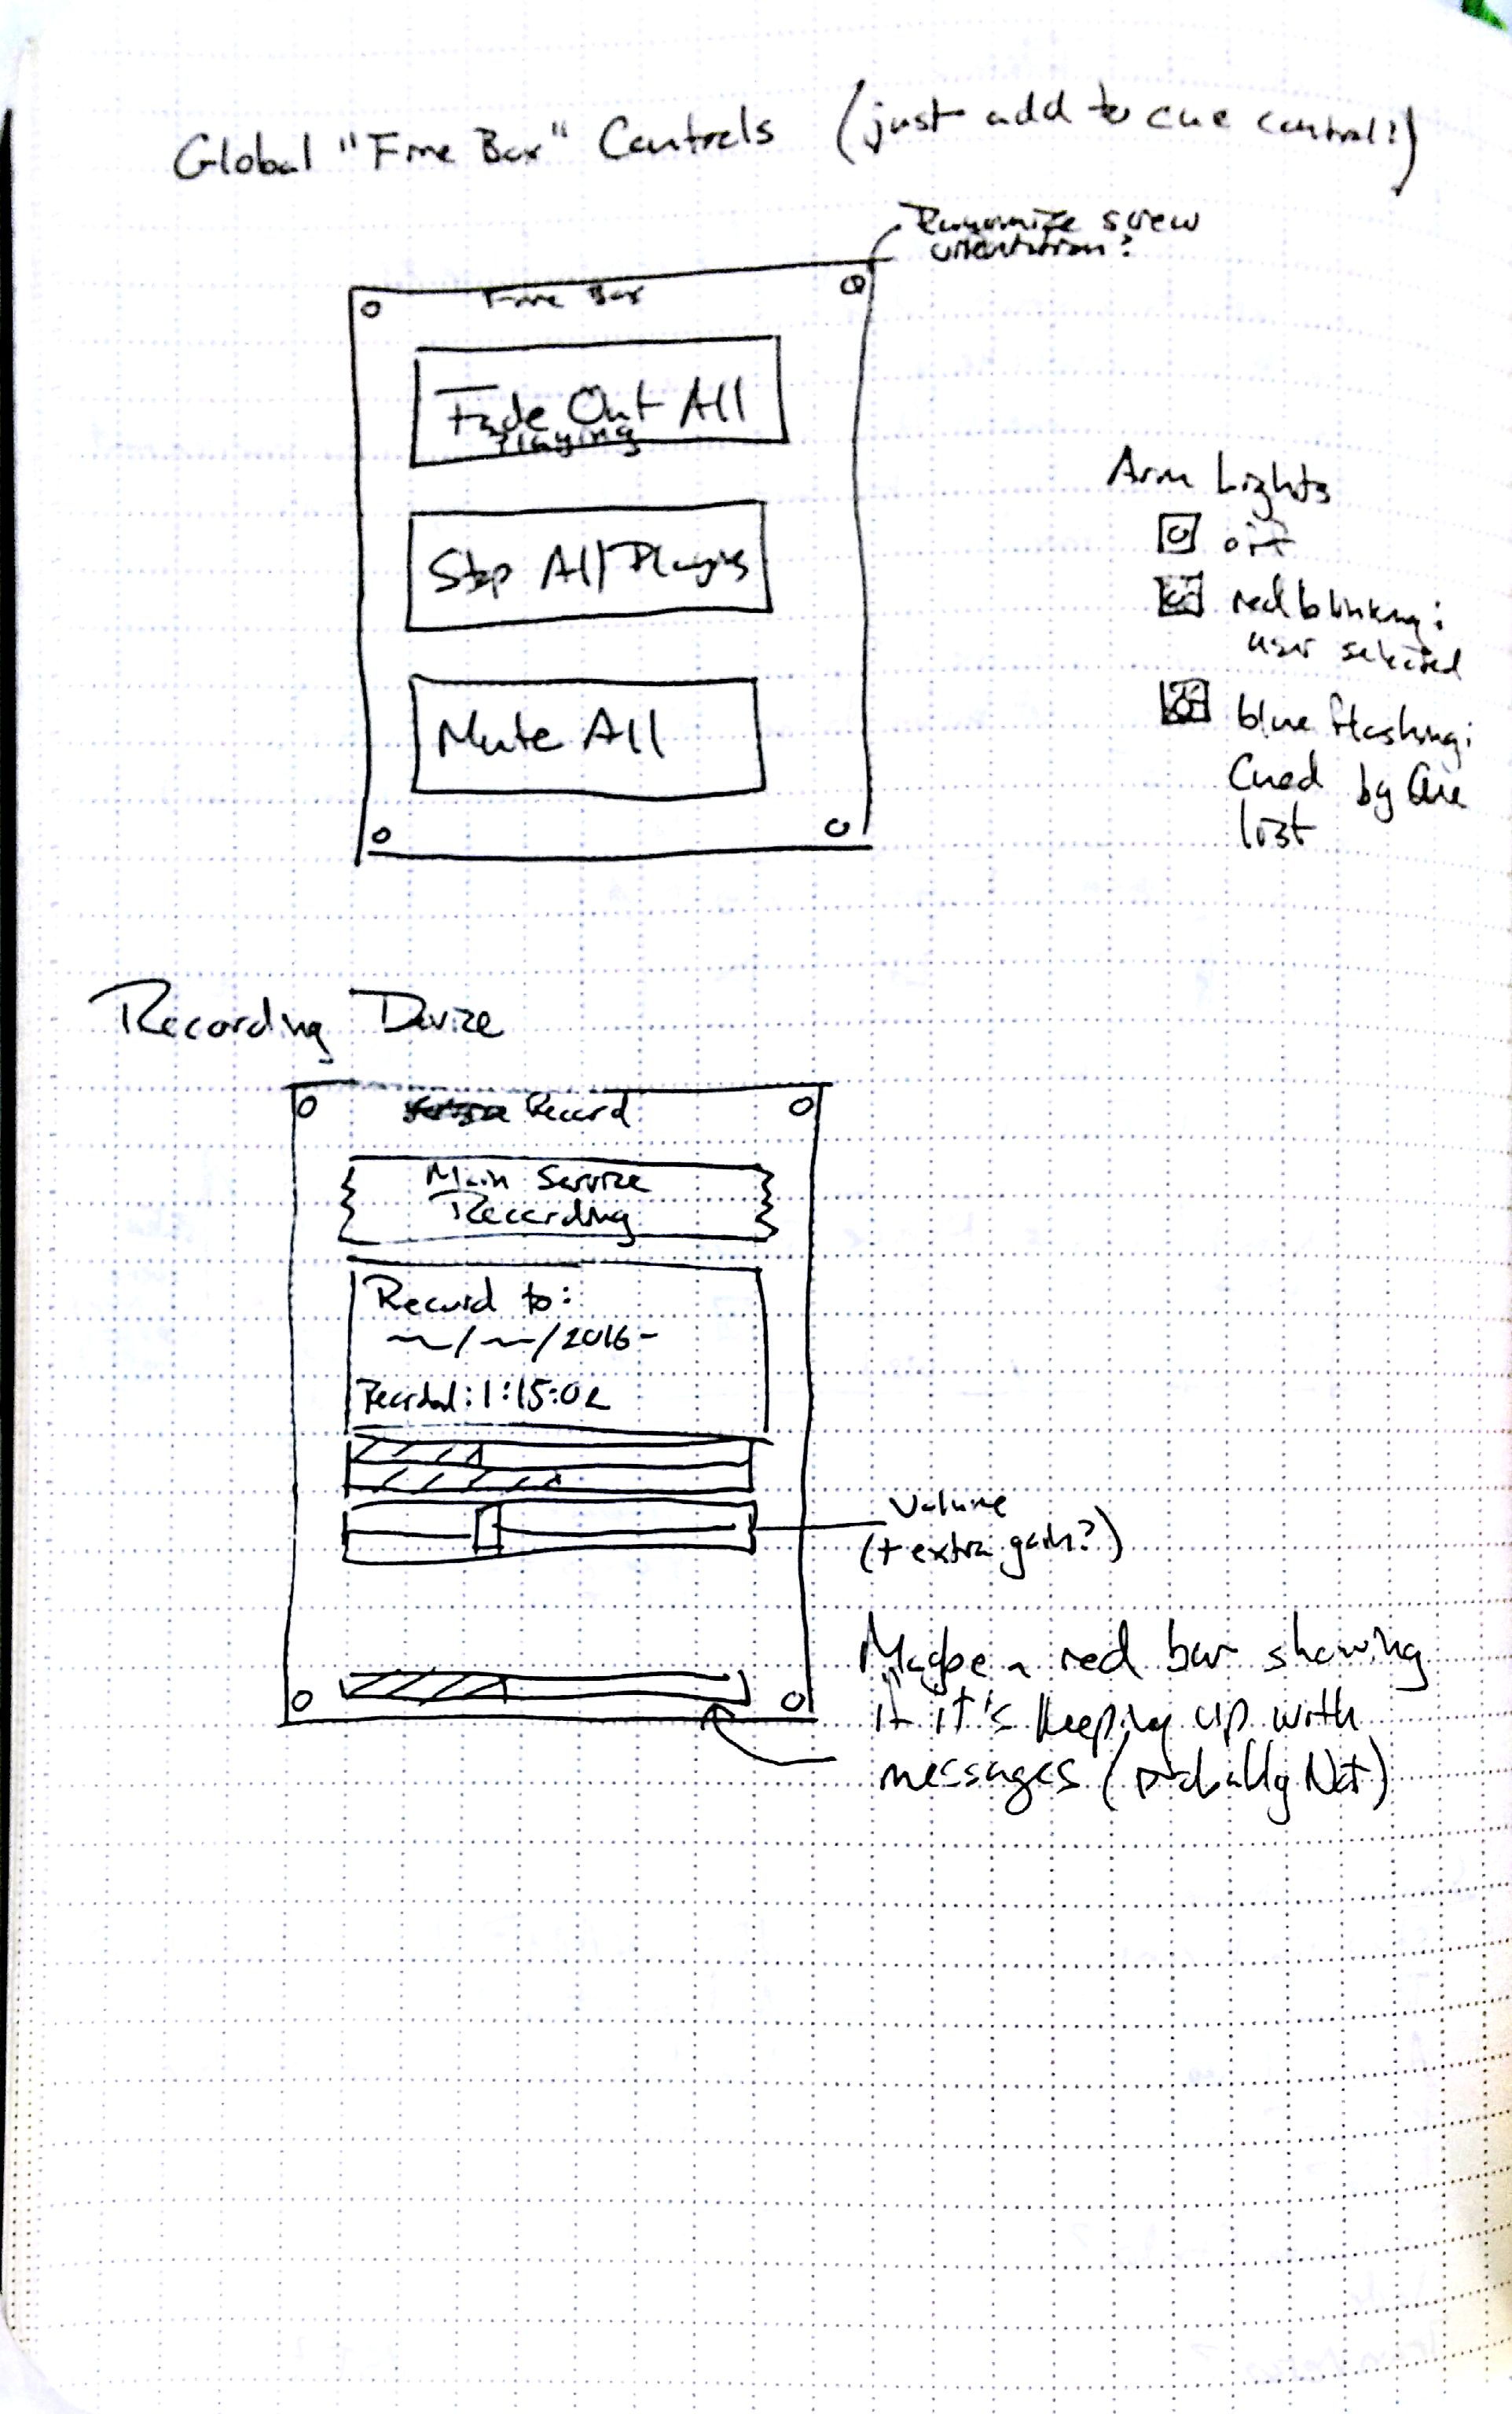 Global "Fire Box" Controls (just add to cue control?)
Randomize screw
orientation?
Fire Box
Fade Out All
Playing
Stop All Playing
Mute All
Arm Lights
off
red blinking:
user selected
blue flashing:
Cued by Cue
list
Recording Device
Record
Main Service
Recording
Record to:
/2016-
Recorded: 1:15:02
Volume
(+ extra gain?)
Maybe a red bar showing
if it's keeping up with
messages (probably Not)